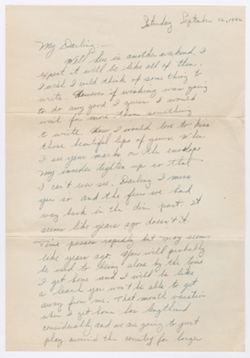 Saturday September 12, 1942
My Darling,
Well here is another weekend I
expect it will be like all of them.
I wish I could think of some thing to
write. However if wishing was going
to do any good I guess I would
wish for more than something
to write. How I would love to kiss
those beautiful lips of yours. When
I see your marks on the envelope
my insides tighten up so that
I can't even see. Darling I miss
you so and the fun we had
way back in the dim past. It
seems like years ago doesn't it
Time passes rapidly but may seem
like years ago. You will probably
be used to living alone by the time
I get home and I will be like
a leach you won't be able to get
away from me. That month vacation
when I get home has lengthened
considerably and we are going to just
play around the country for longer